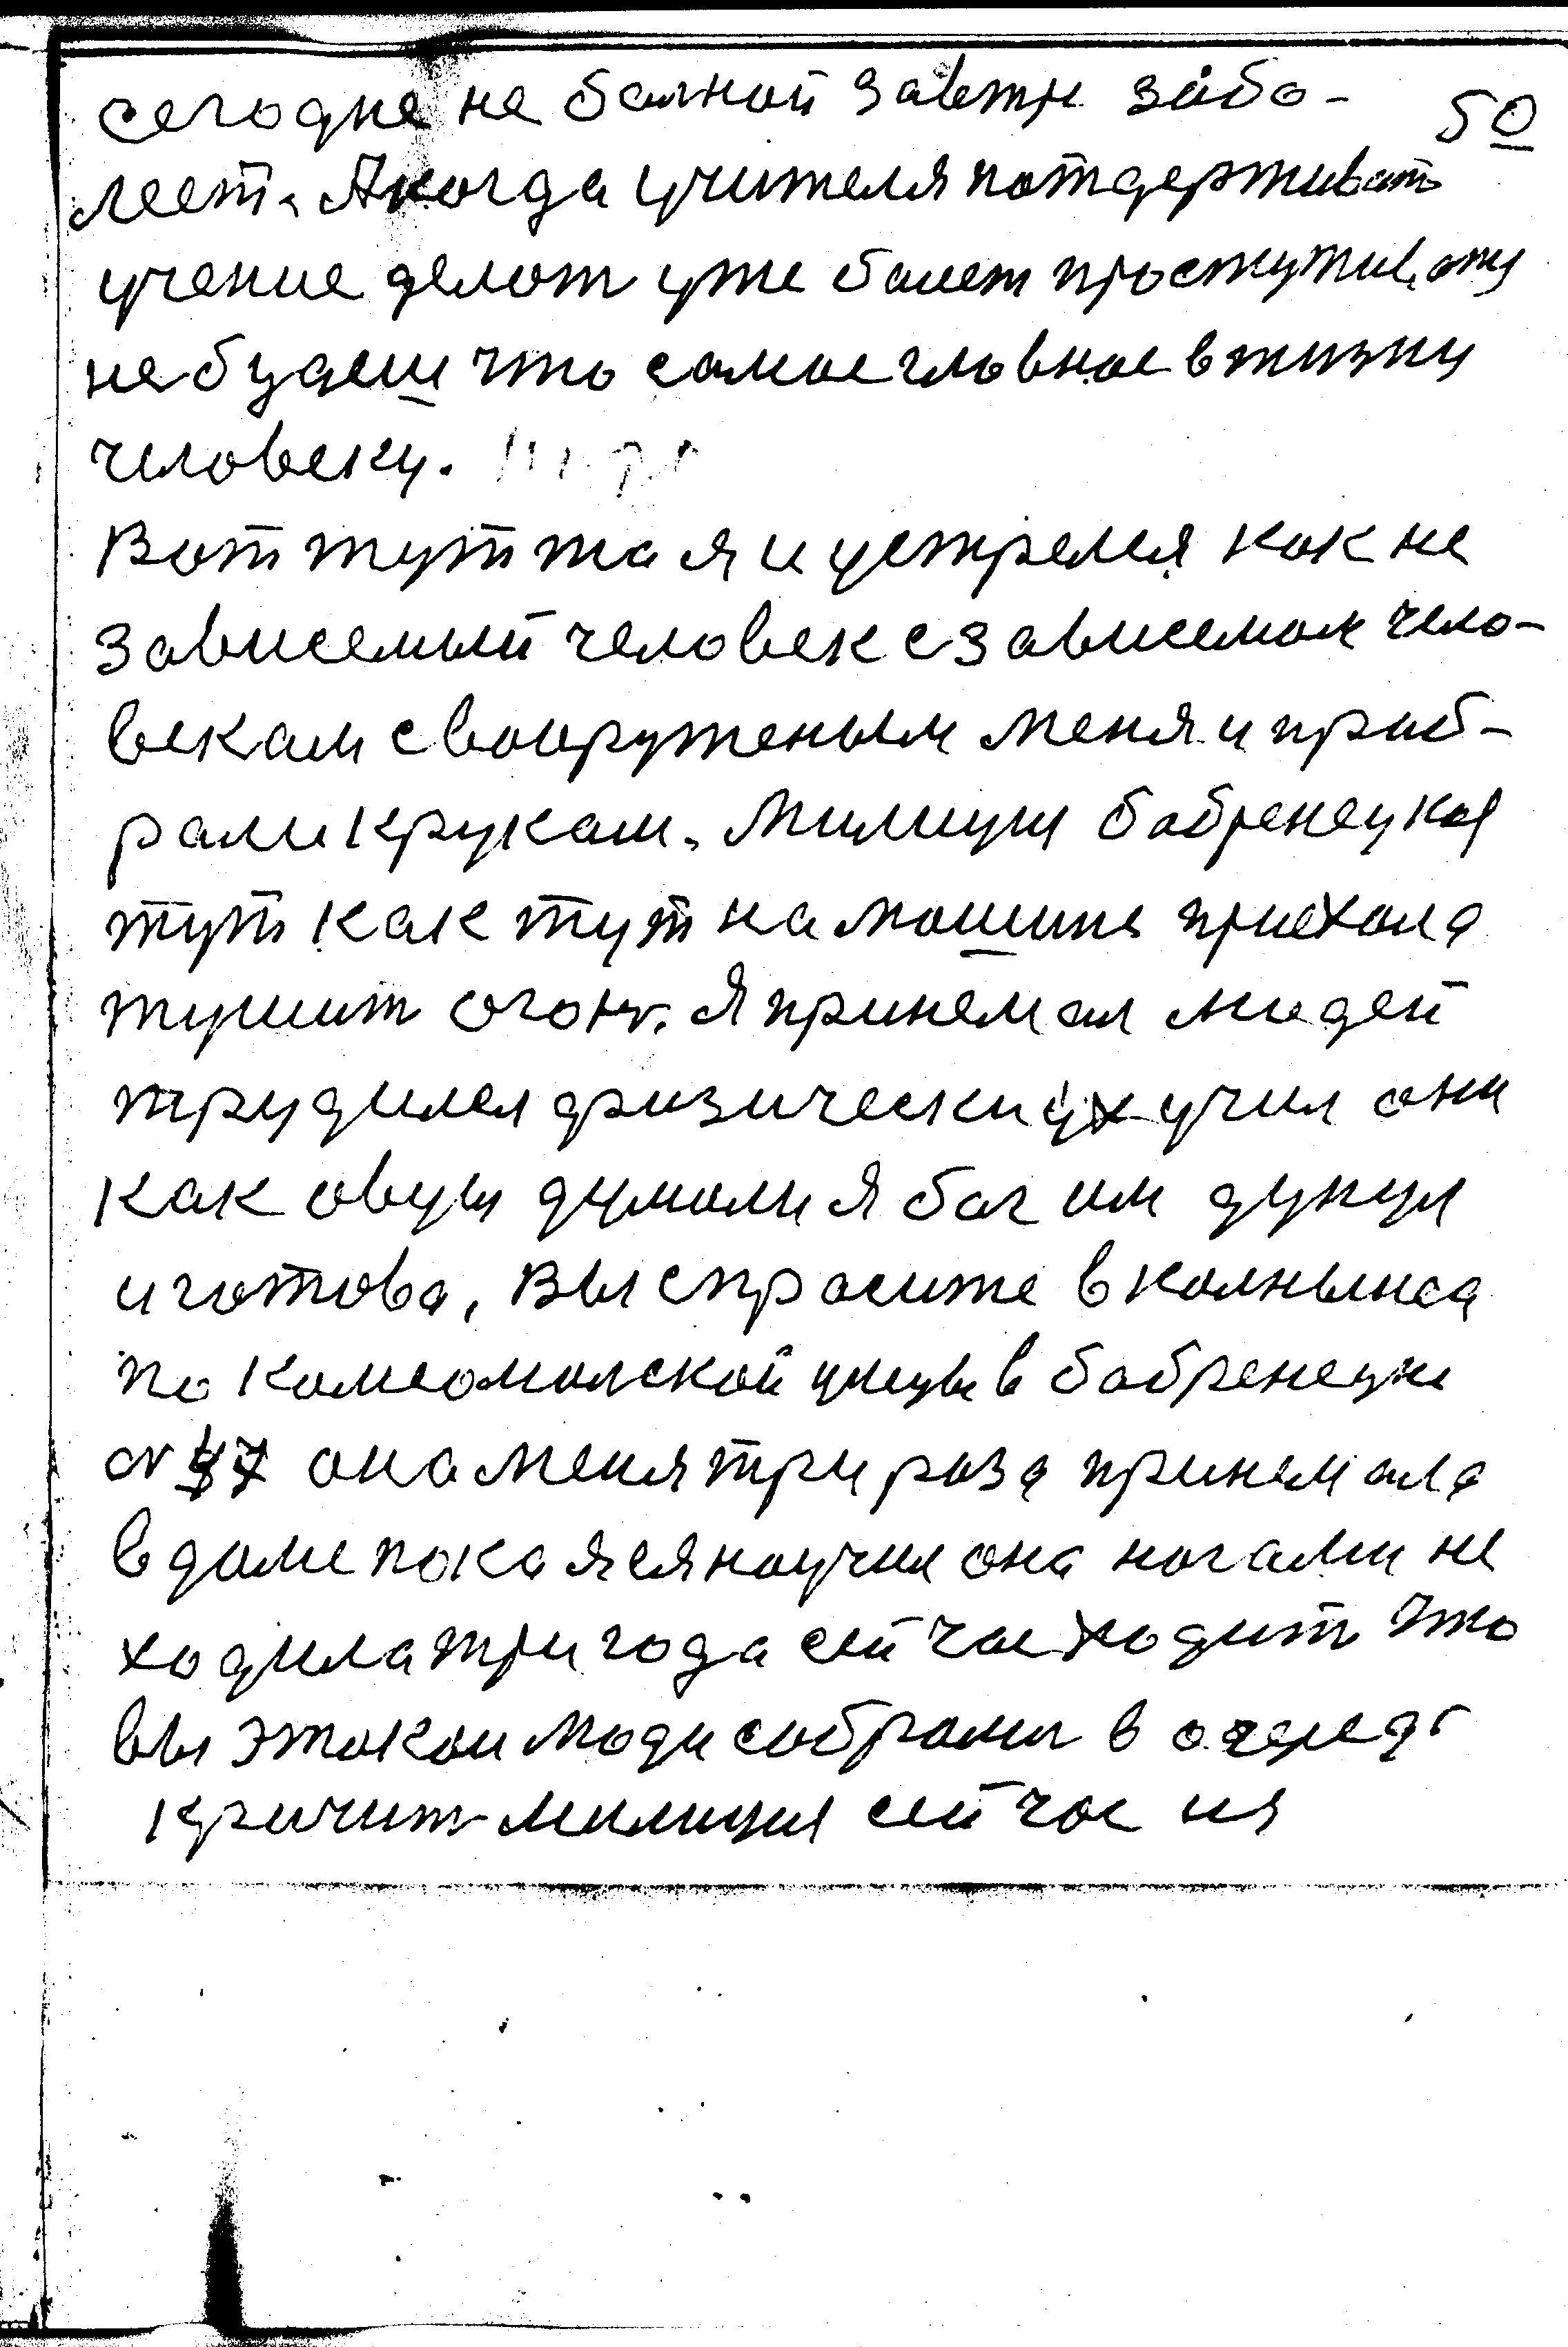 сегодне не балной завтри забо-
50
леет. А когда учителя потдерживат
учение делот уже балет простужив, ому
не будеш что самое гловное в жизни
человеку.
Вот тут та я и устрелся как не
зависемый человек с зависемом чело-
векам с вооруженым меня и праб-
рали к рукам. Милиция бабренецкая
тут как тут на машине приехала
тушит огонь. Я принемал людей
трудился физически их учил они
как овцы думоли я бог им дунул
и готова, вы спросите в
по Комсомолской улицы в бабренецке
N 47 она меня три раза принемала
в доме пока я ся научил она ногами не
ходила три года сийчас ходит что
вы этокои люди собрали в очередь
кричит милиция сийчас их